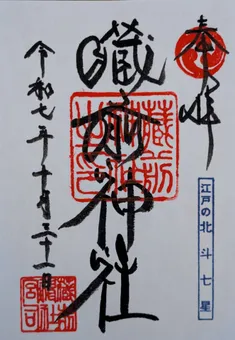 奉拝
江戸の北斗七星
蔵前神社
令和七年十月三十一日